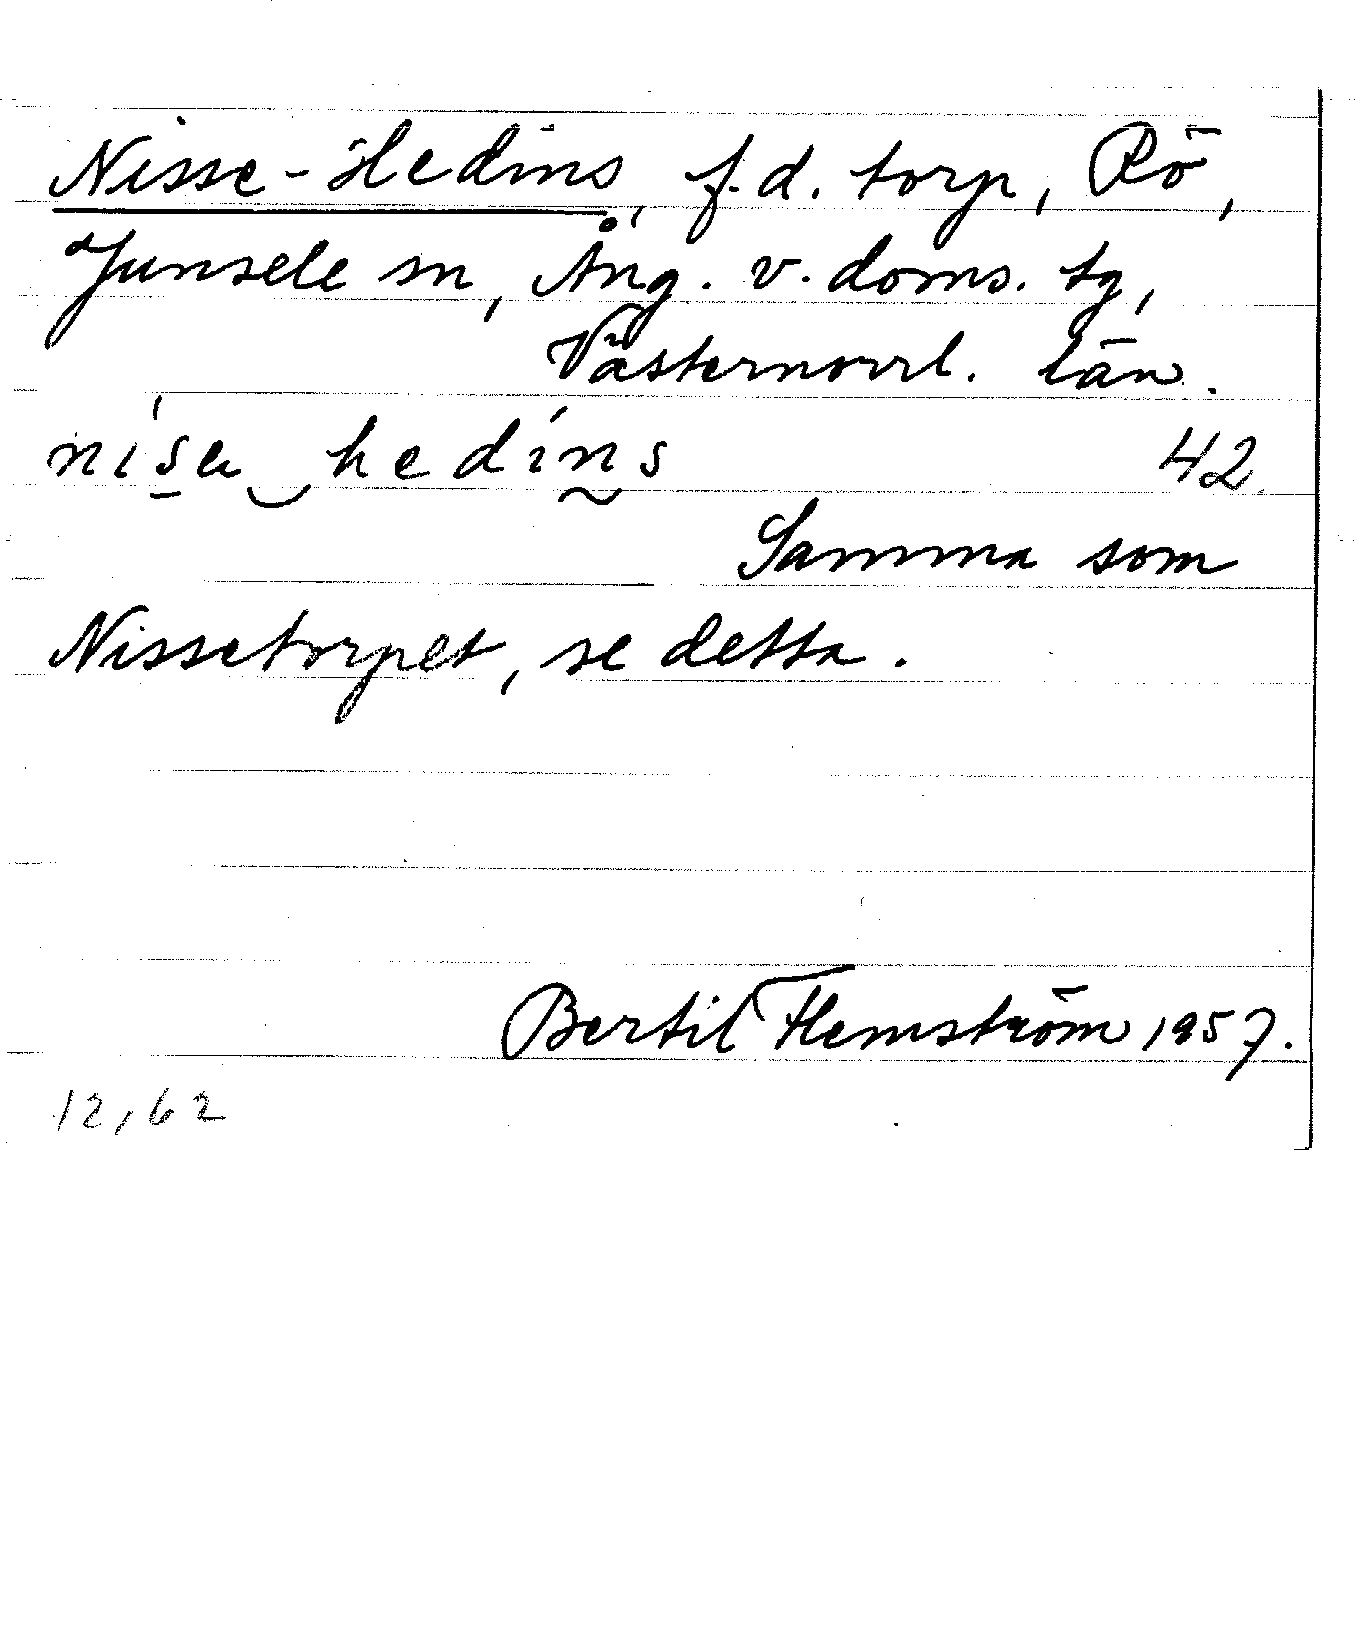 Nisse-Hedins, f.d. torp, Rö,
Junsele sn, Ång. v. doms. tg,
Västernorrl. län.
nisa hedíns 42
Samma som
Nissetorpet, se detta.
Bertil Flemström 1957.
12,62